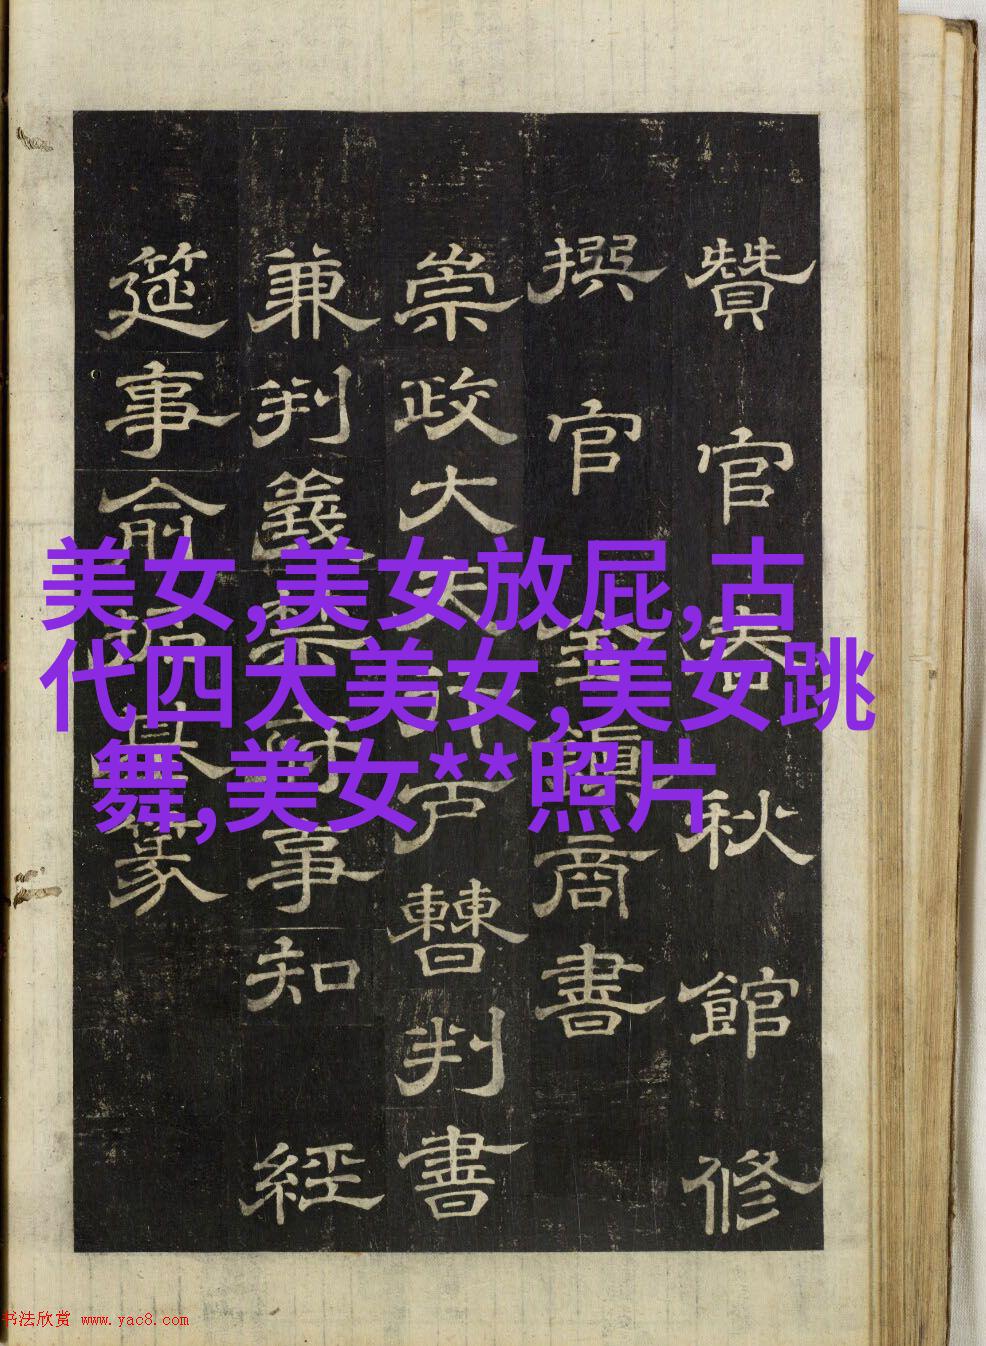 贊官春秋館修
撰官金鎮商書
崇政大夫行戶曹判書
兼判義禁府事知經
筵事俞拓基篆
美女,美女放屁,古
代四大美女,美女跳
舞,美女**照片
书法欣赏 www.yac8.com